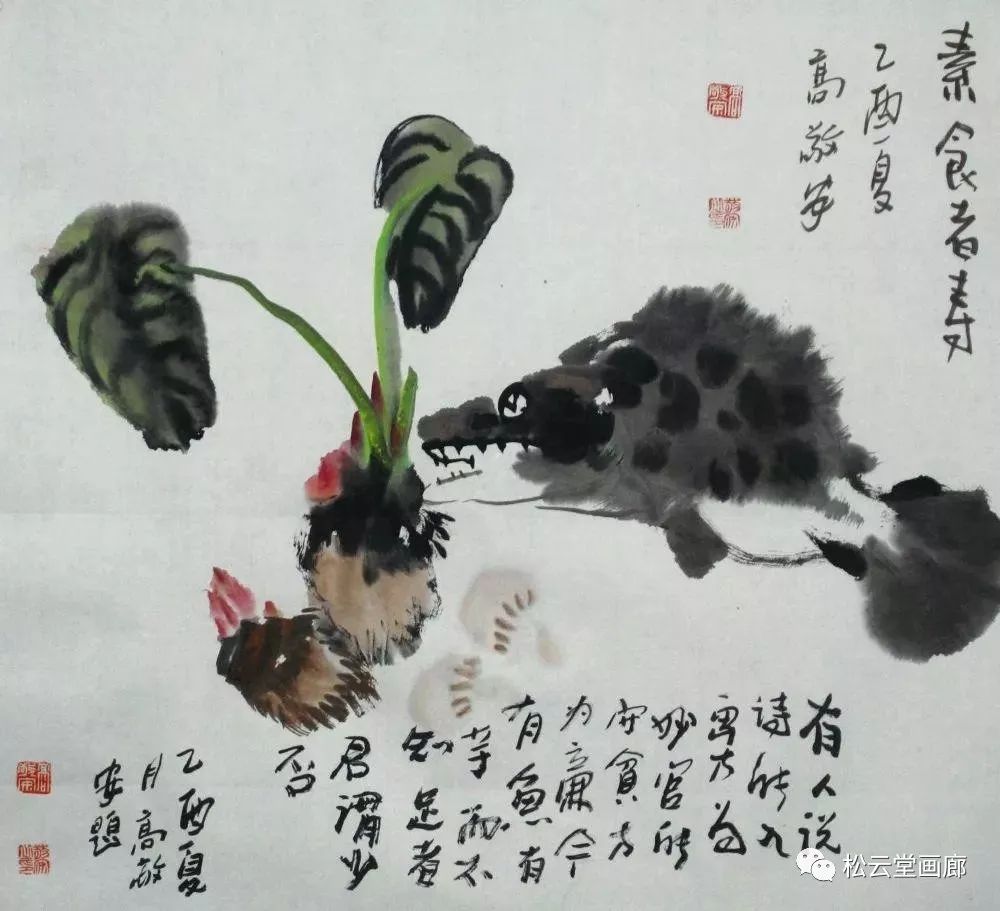 素食者寿
乙酉夏
高敬安
有人说
诗能入
画方为
妙官能
守贫方
为廉今
有鱼有
芋而不
知足者
君谓
否
乙酉夏
月高敬
安题
松云堂画廊